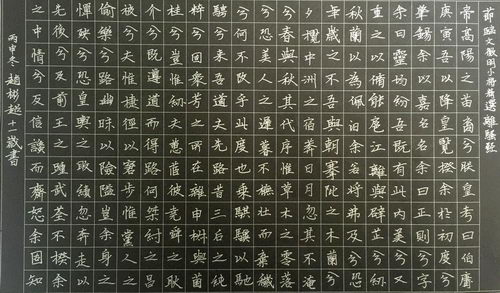 帝高陽之苗裔兮朕皇考曰伯庸
庚寅吾以降皇覽揆余於初度兮
肇錫余以嘉名名余曰正則兮字
余曰靈均紛吾既有此內美兮又
重之以脩能扈江離與辟芷兮紉
秋蘭以為佩汩余若將弗及兮恐
年歲之不吾與朝搴阰之木蘭兮
夕攬中洲之宿莽日月忽其不淹
兮春與秋其代序惟草木之零落
兮恐美人之遲暮不撫壯而棄穢
兮何不改乎此度也乘騏驥以馳
騁兮來吾導夫先路昔三后之純
粹兮固衆芳之所在雜申椒與菌
桂兮豈惟紉夫蕙茝彼堯舜之耿
介兮既遵道而得路何桀紂之昌
被兮夫惟捷徑以窘步惟黨人之
偷樂兮路幽昧以險隘豈余身之
憚殃兮恐皇輿之敗績忽奔走以
先後兮及前王之踵武荃不揆余
之中情兮反信讒而齌怒余固知
丙申冬趙彬越十一歲書